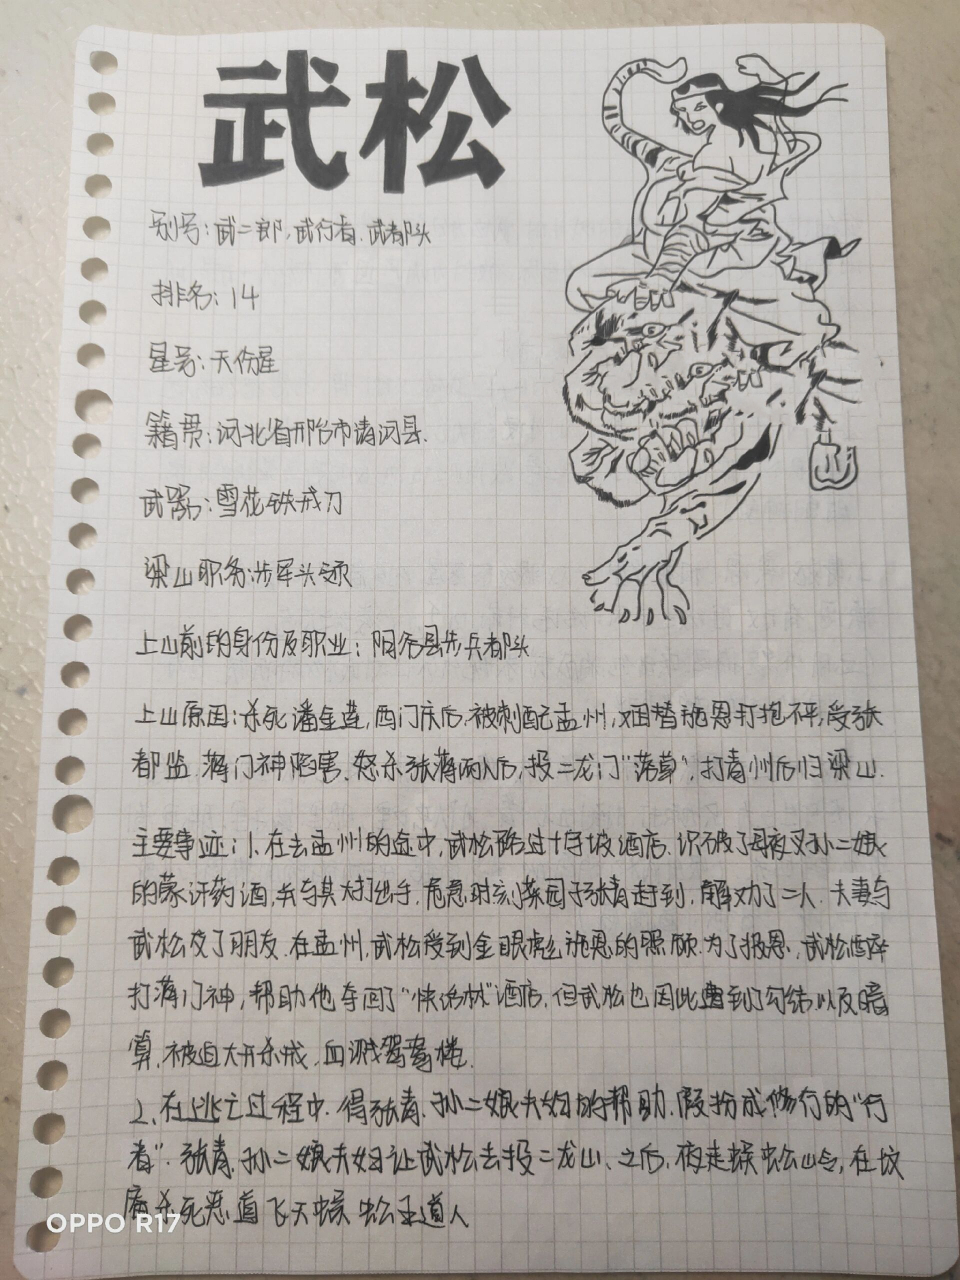 武松
别号:武二郎,武行者.武都头
排名:14
星号:天伤星
籍贯:河北省邢台市清河县.
武器:雪花铁戒刀
梁山职务:步军头领
上山前的身份及职业:阳谷县步兵都头
上山原因:杀死潘金莲,西门庆后,被刺配孟州,又因替施恩打抱不平,受张
都监.蒋门神陷害.怒杀张蒋两人后,投二龙门"落草",打青州后归梁山.
主要事迹:1.在去孟州的途中,武松路过十字坡酒店.识破了母夜叉孙二娘
的蒙汗药酒,并与其大打出手,危急时刻菜园子张青赶到,解劝了二人.夫妻与
武松交了朋友.在孟州,武松受到金眼彪施恩的照顾.为了报恩,武松醉
打蒋门神,帮助他夺回了"快活林"酒店,但武松也因此遭到了勾结以及暗
算,被迫大开杀戒.血溅鸳鸯楼.
2、在逃亡过程中.得张青.孙二娘夫妇的帮助.假扮成修行的"行
者".张青.孙二娘夫妇让武松去投二龙山、之后,夜走蜈蚣岭,在坟
庵杀死恶道飞天蜈蚣王道人
OPPO R17